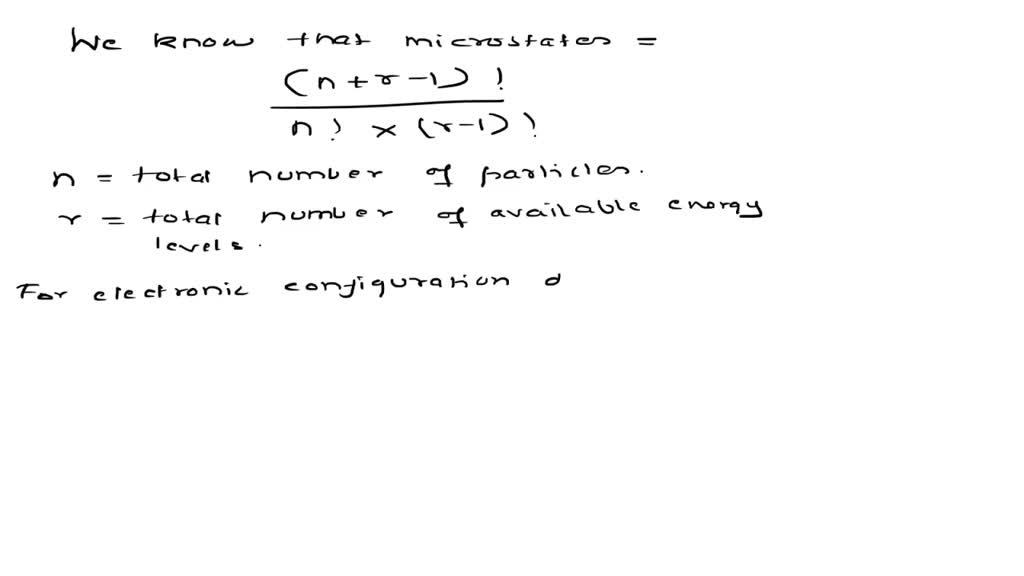 We know that microstates =
(n + r - 1) !
n ! × (r-1) !
n = total number of particles.
r = total number of available energy
levels.
For electronic configuration d